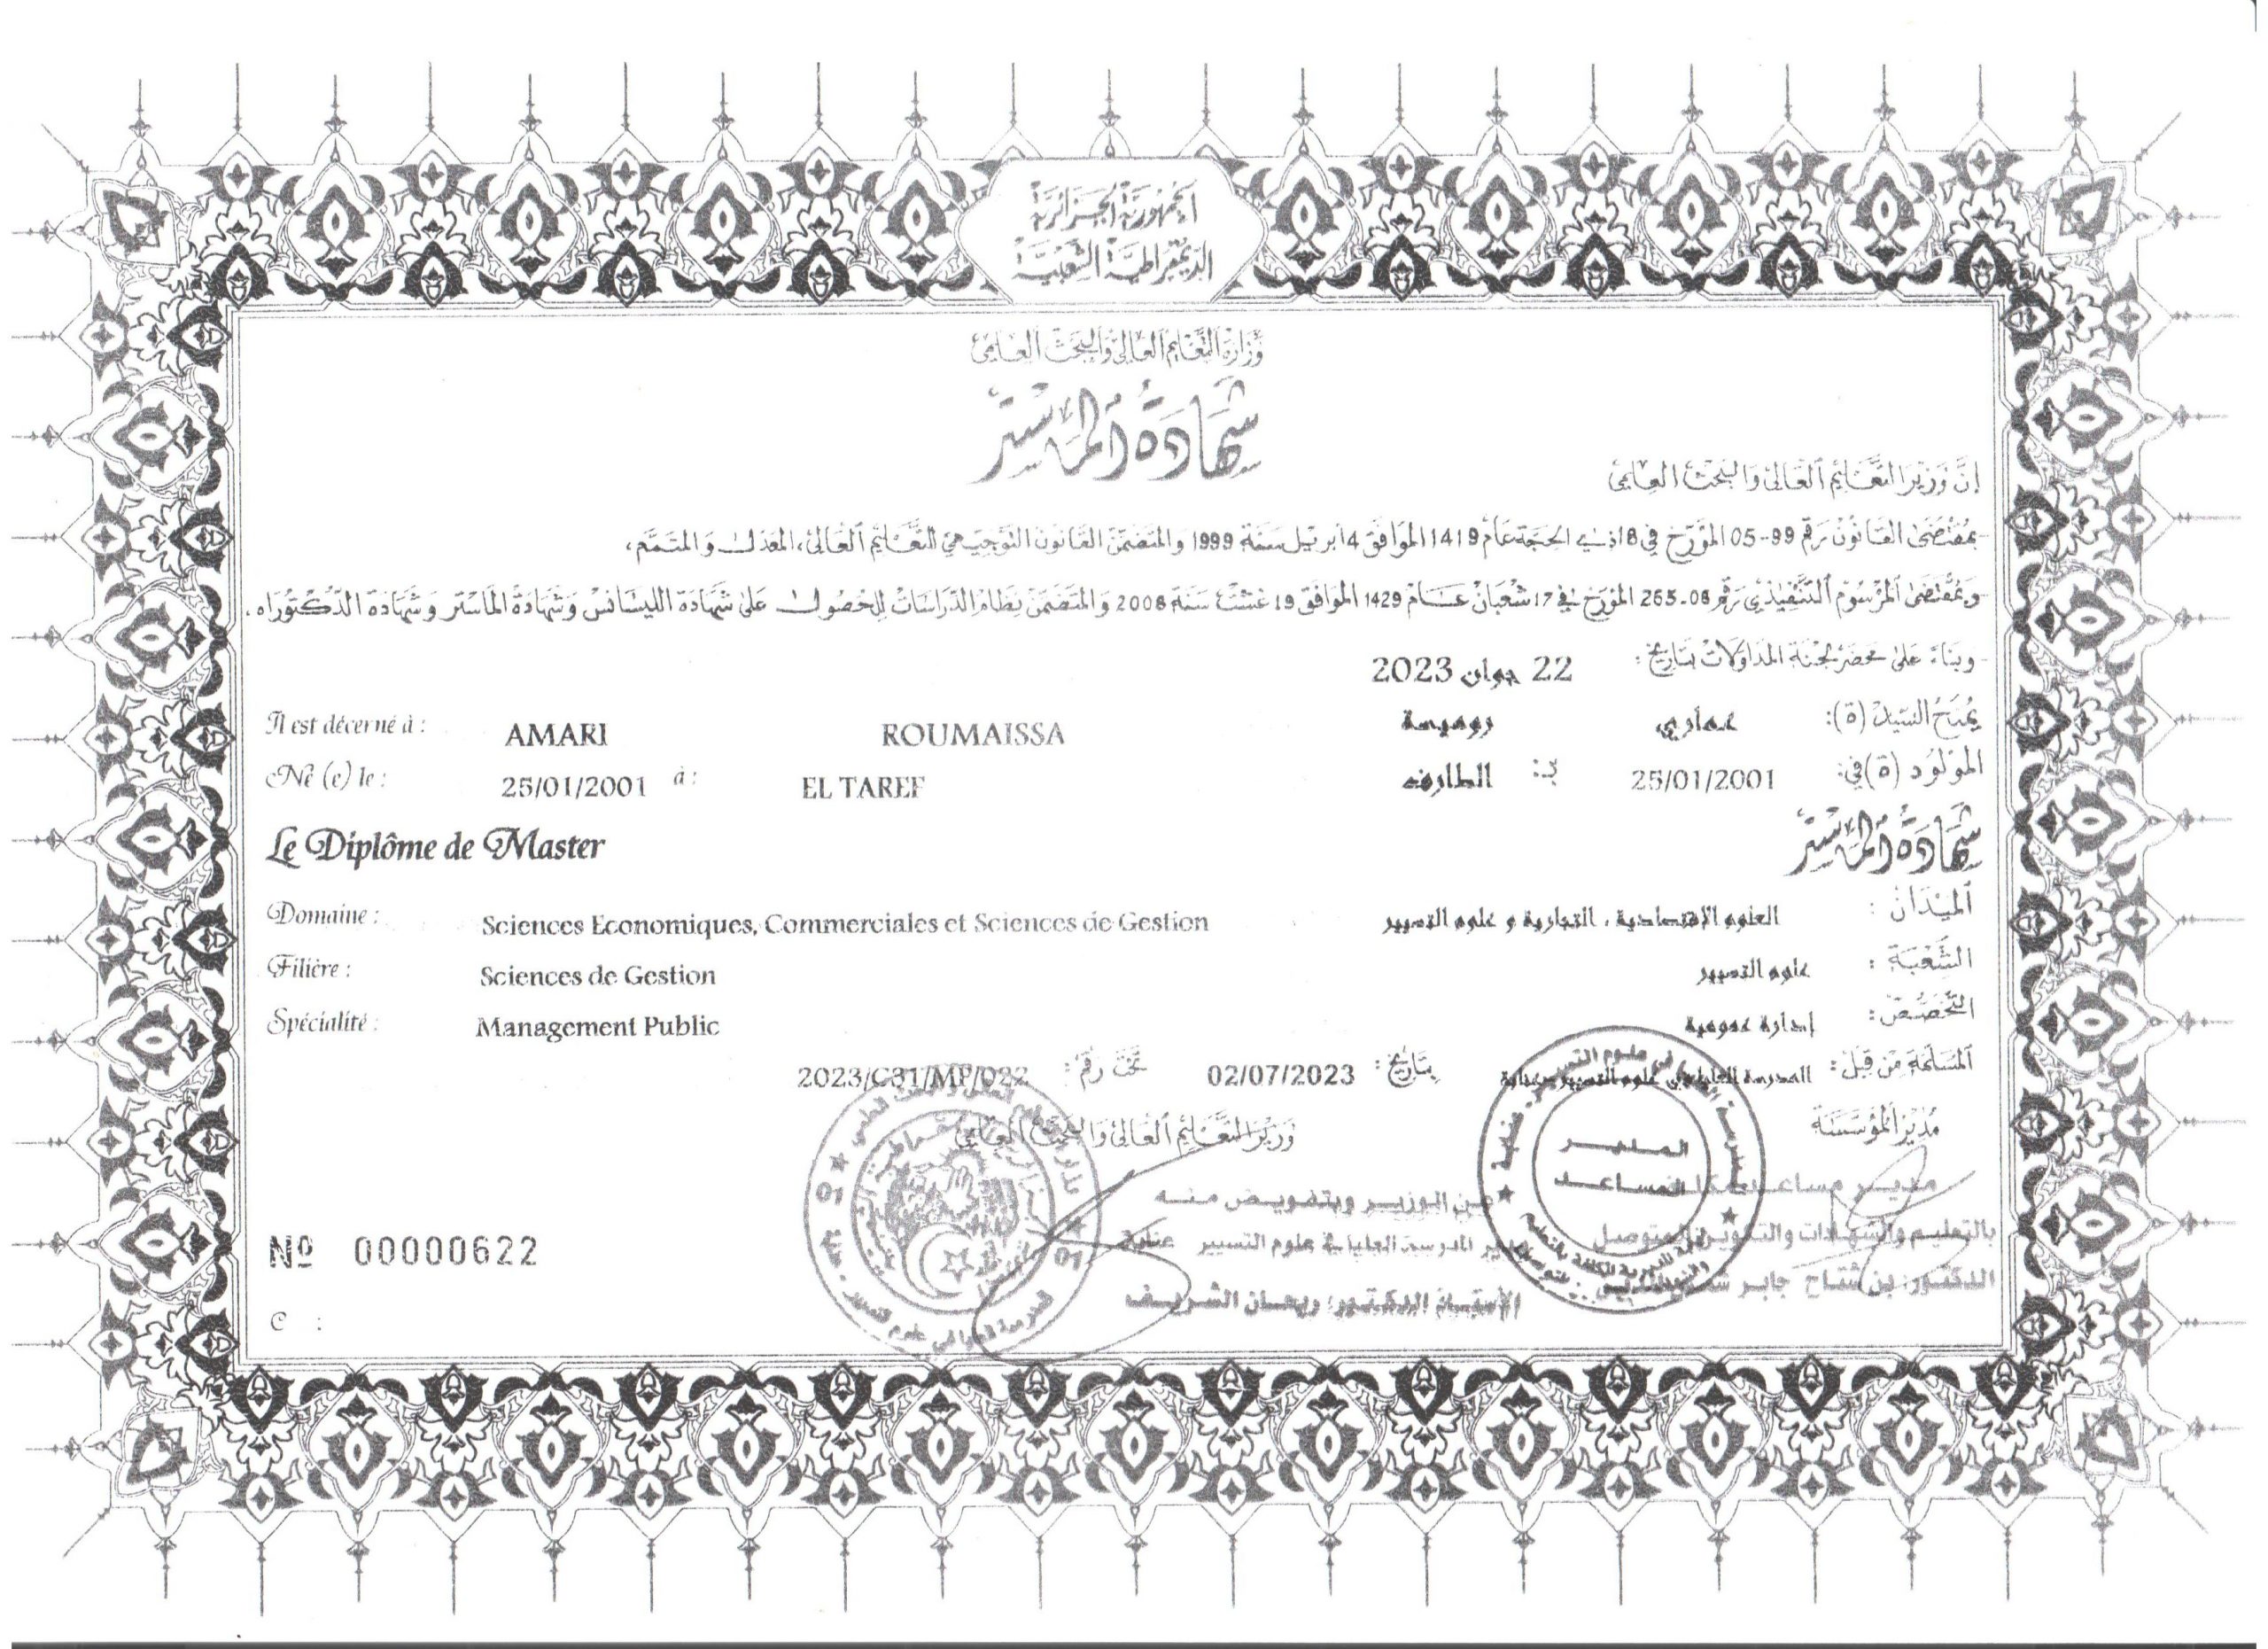 الجمهورية الجزائرية
الديمقراطية الشعبية
وزارة التعليم العالي والبحث العلمي
شهادة الماستر
إن وزير التعليم العالي والبحث العلمي
- بمقتضى القانون رقم 99-05 المؤرخ في 18 ذي الحجة عام 1419 الموافق 4 أبريل سنة 1999 والمتضمن القانون التوجيهي للتعليم العالي، المعدل والمتمم،
- وبمقتضى المرسوم التنفيذي رقم 08-265 المؤرخ في 17 شعبان عام 1429 الموافق 19 غشت سنة 2008 والمتضمن نظام الدراسات للحصول على شهادة الليسانس وشهادة الماستر وشهادة الدكتوراه.
- وبناء على محضر لجنة المداولات بتاريخ: 22 جوان 2023
يمنح السيد (ة): عماري روميسة
Il est décerné à : AMARI ROUMAISSA
المولود (ة) في: 25/01/2001 بـ: الطارف
Né (e) le : 25/01/2001 à : EL TAREF
شهادة الماستر
Le Diplôme de Master
الميدان : العلوم الإقتصادية ، التجارية و علوم التسيير
Domaine : Sciences Economiques, Commerciales et Sciences de Gestion
الشعبة : علوم التسيير
Filière : Sciences de Gestion
التخصص: إدارة عمومية
Spécialité : Management Public
المسلمة من قبل: المدرسة العليا في علوم التسيير - عنابة بتاريخ: 02/07/2023 تحت رقم: 2023/C31/MP/022
مدير المؤسسة
وزير التعليم العالي والبحث العلمي
المدير
المساعد
مدير مساعد مكلف
بالتعليم والشهادات والتكوين المتوصل
الدكتور: بن شتاح جابر
عن الوزير وبتفويض منه
مدير المدرسة العليا في علوم التسيير عنابة
الأستاذ الدكتور: ريحان الشريف
Nº 00000622
C :